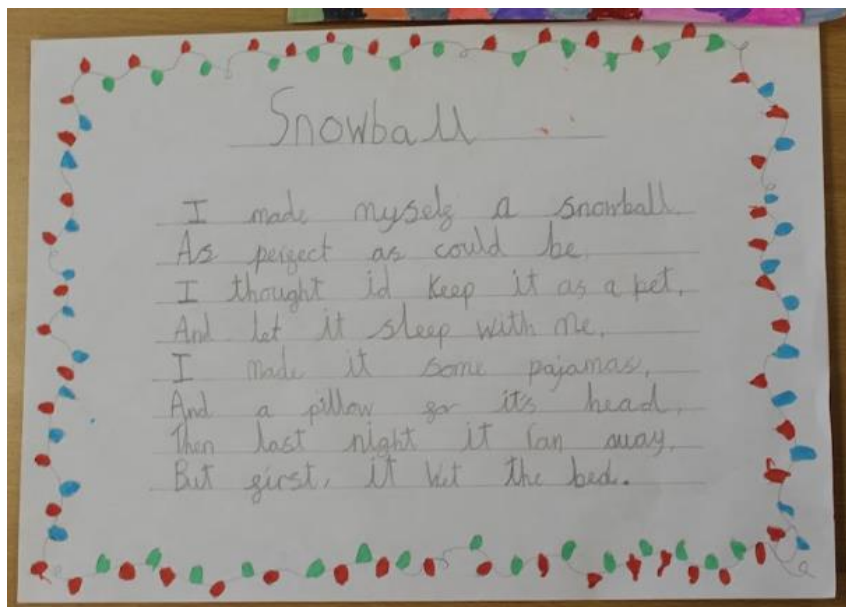 Snowball
I made myself a snowball.
As perfect as could be.
I thought id keep it as a pet,
And let it sleep with me.
I made it some pajamas,
And a pillow for it's head,
Then last night it ran away.
But first, it wet the bed.